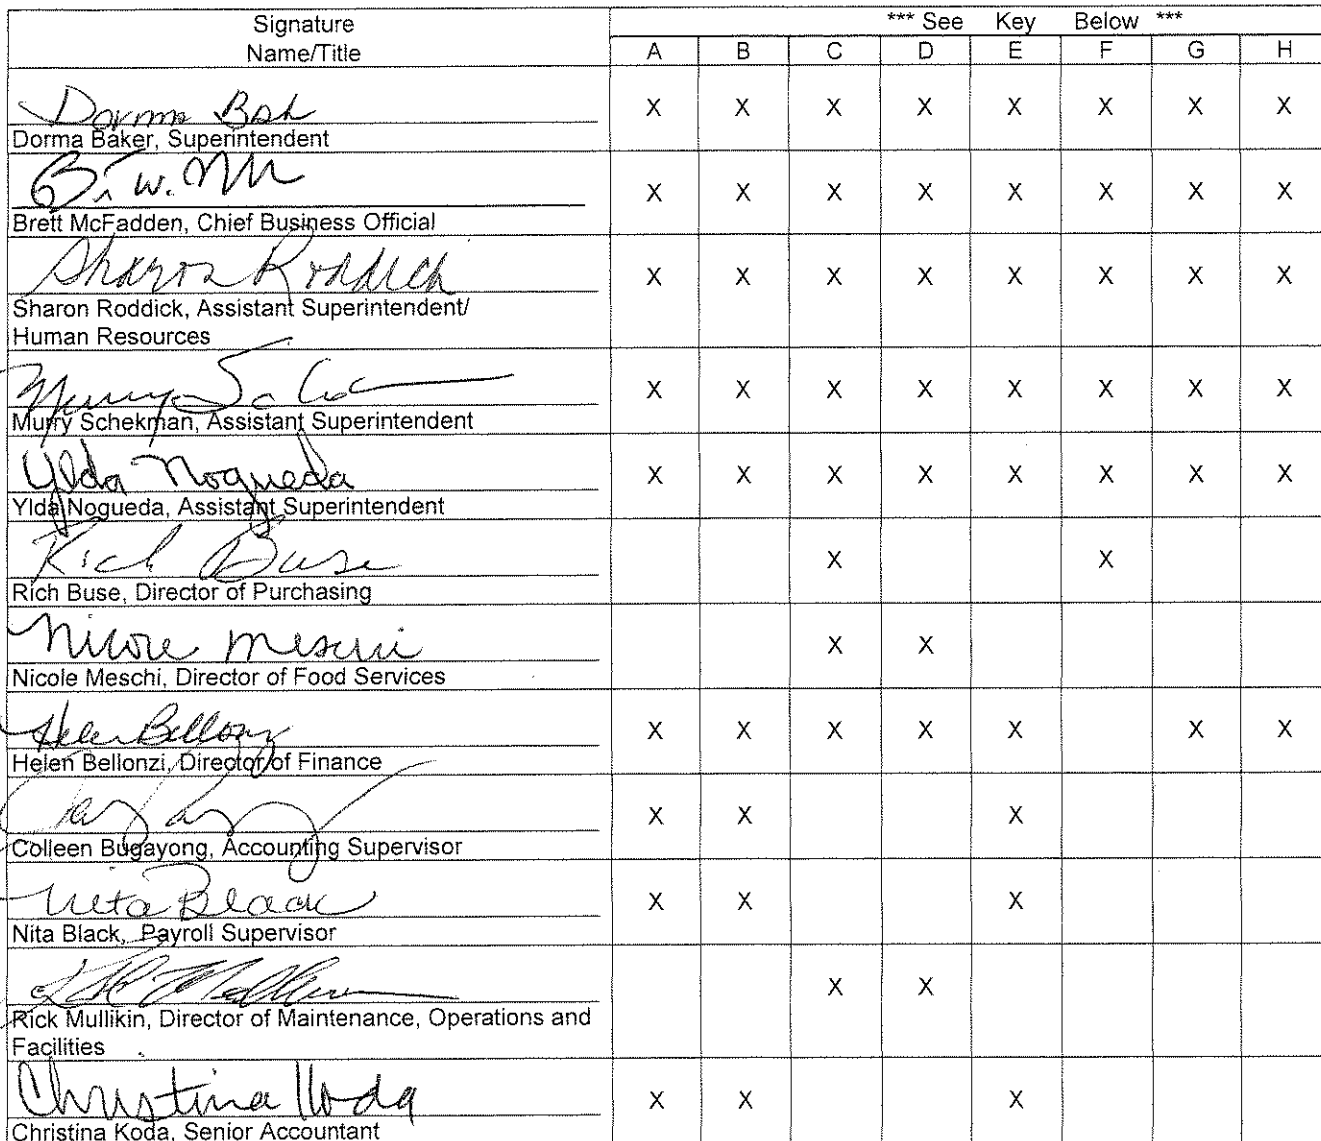 Signature *** See Key Below ***
Name/Title A B C D E F G H
Dorma X X X X X X X X
Dorma Baker, Superintendent
W. X X X X X X X X
Brett McFadden, Chief Business Official
Sharon Roddick X X X X X X X X
Sharon Roddick, Assistant Superintendent/
Human Resources
Murry X X X X X X X X
Murry Schekman, Assistant Superintendent
Ylda Nogueda X X X X X X X X
Ylda Nogueda, Assistant Superintendent
Rich Buse X X
Rich Buse, Director of Purchasing
Nicole Meschi X X
Nicole Meschi, Director of Food Services
Helen Bellonzi X X X X X X X
Helen Bellonzi, Director of Finance
X X X
Colleen Bugayong, Accounting Supervisor
Nita Black X X X
Nita Black, Payroll Supervisor
X X
Rick Mullikin, Director of Maintenance, Operations and
Facilities
Christina Koda X X X
Christina Koda, Senior Accountant